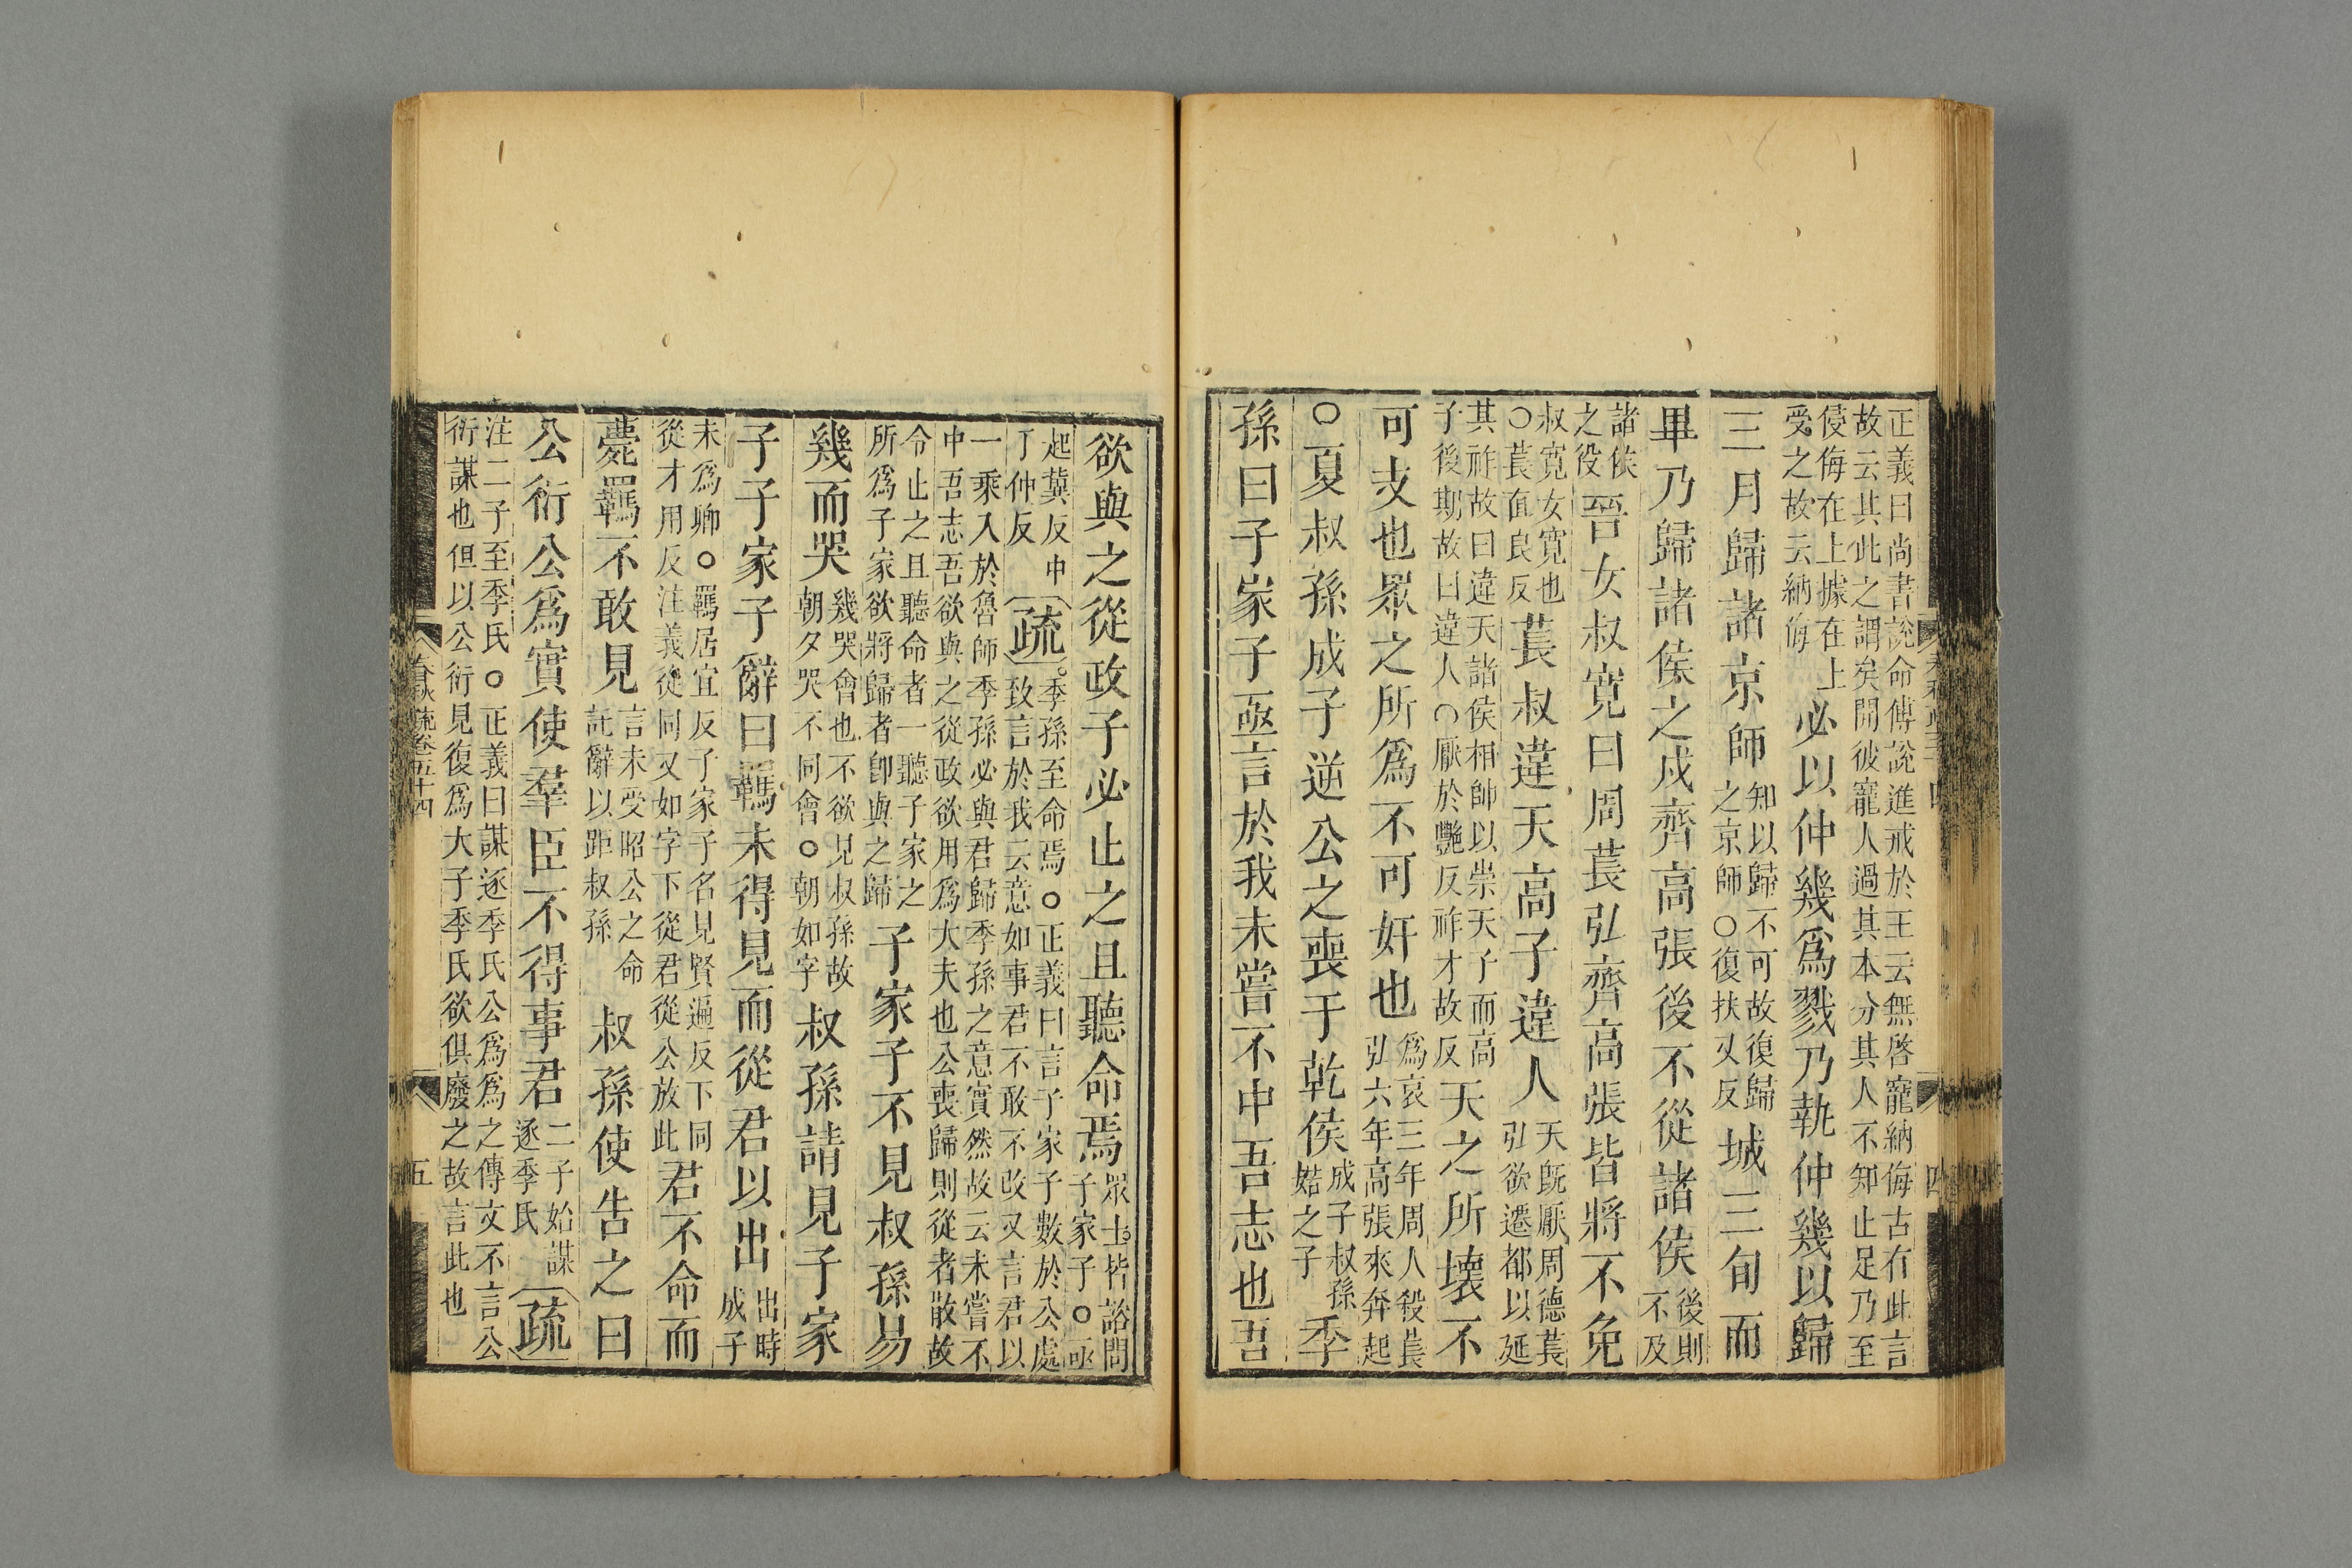 正義曰尚書說命傅說進戒於王云無啓寵納侮古有此言
故云其此之謂矣開彼寵人過其本分其人不知止足乃至
侵侮在上據在上
受之故云納侮
必以仲幾爲戮乃執仲幾以歸
三月歸諸京師
知以歸不可故復歸
之京師○復扶又反
城三旬而
畢乃歸諸侯之戍齊高張後不從諸侯
後則
不及
諸侯
之役
晉女叔寬曰周萇弘齊高張皆將不免
叔寬女寬也
○萇直良反
萇叔違天高子違人
天旣厭周德萇
弘欲遷都以延
其祚故曰違天諸侯相帥以崇天子而高
子後期故曰違人○厭於豔反祚才故反
天之所壞不
可支也眾之所爲不可奸也
爲哀三年周人殺萇
弘六年高張來奔起
○夏叔孫成子逆公之喪于乾侯
成子叔孫
婼之子
季
孫曰子家子亟言於我未嘗不中吾志也吾
四
欲與之從政子必止之且聽命焉
眾士皆諮問
子家子○亟
起冀反中
丁仲反
疏
季孫至命焉○正義曰言子家子數於公處
致言於我云意如事君不敢不改又言君以
一乘入於魯師季孫必與君歸季孫之意實然故云未嘗不
中吾志吾欲與之從政欲用爲大夫也公喪歸則從者散故
令止之且聽命者一聽子家之
所爲子家欲將歸者卽與之歸
子家子不見叔孫易
幾而哭
幾哭會也不欲見叔孫故
朝夕哭不同會○朝如字
叔孫請見子家
子子家子辭曰羈未得見而從君以出
出時
成子
未爲卿○羈居宜反子家子名見賢遍反下同
從才用反注義從同又如字下從君從公放此
君不命而
薨羈不敢見
言未受昭公之命
託辭以距叔孫
叔孫使告之曰
公衍公爲實使羣臣不得事君
二子始謀
逐季氏
疏
注二子至季氏○正義曰謀逐季氏公爲爲之傳文不言公
衍謀也但以公衍見復爲大子季氏欲俱廢之故言此也
春秋疏卷五十四
五